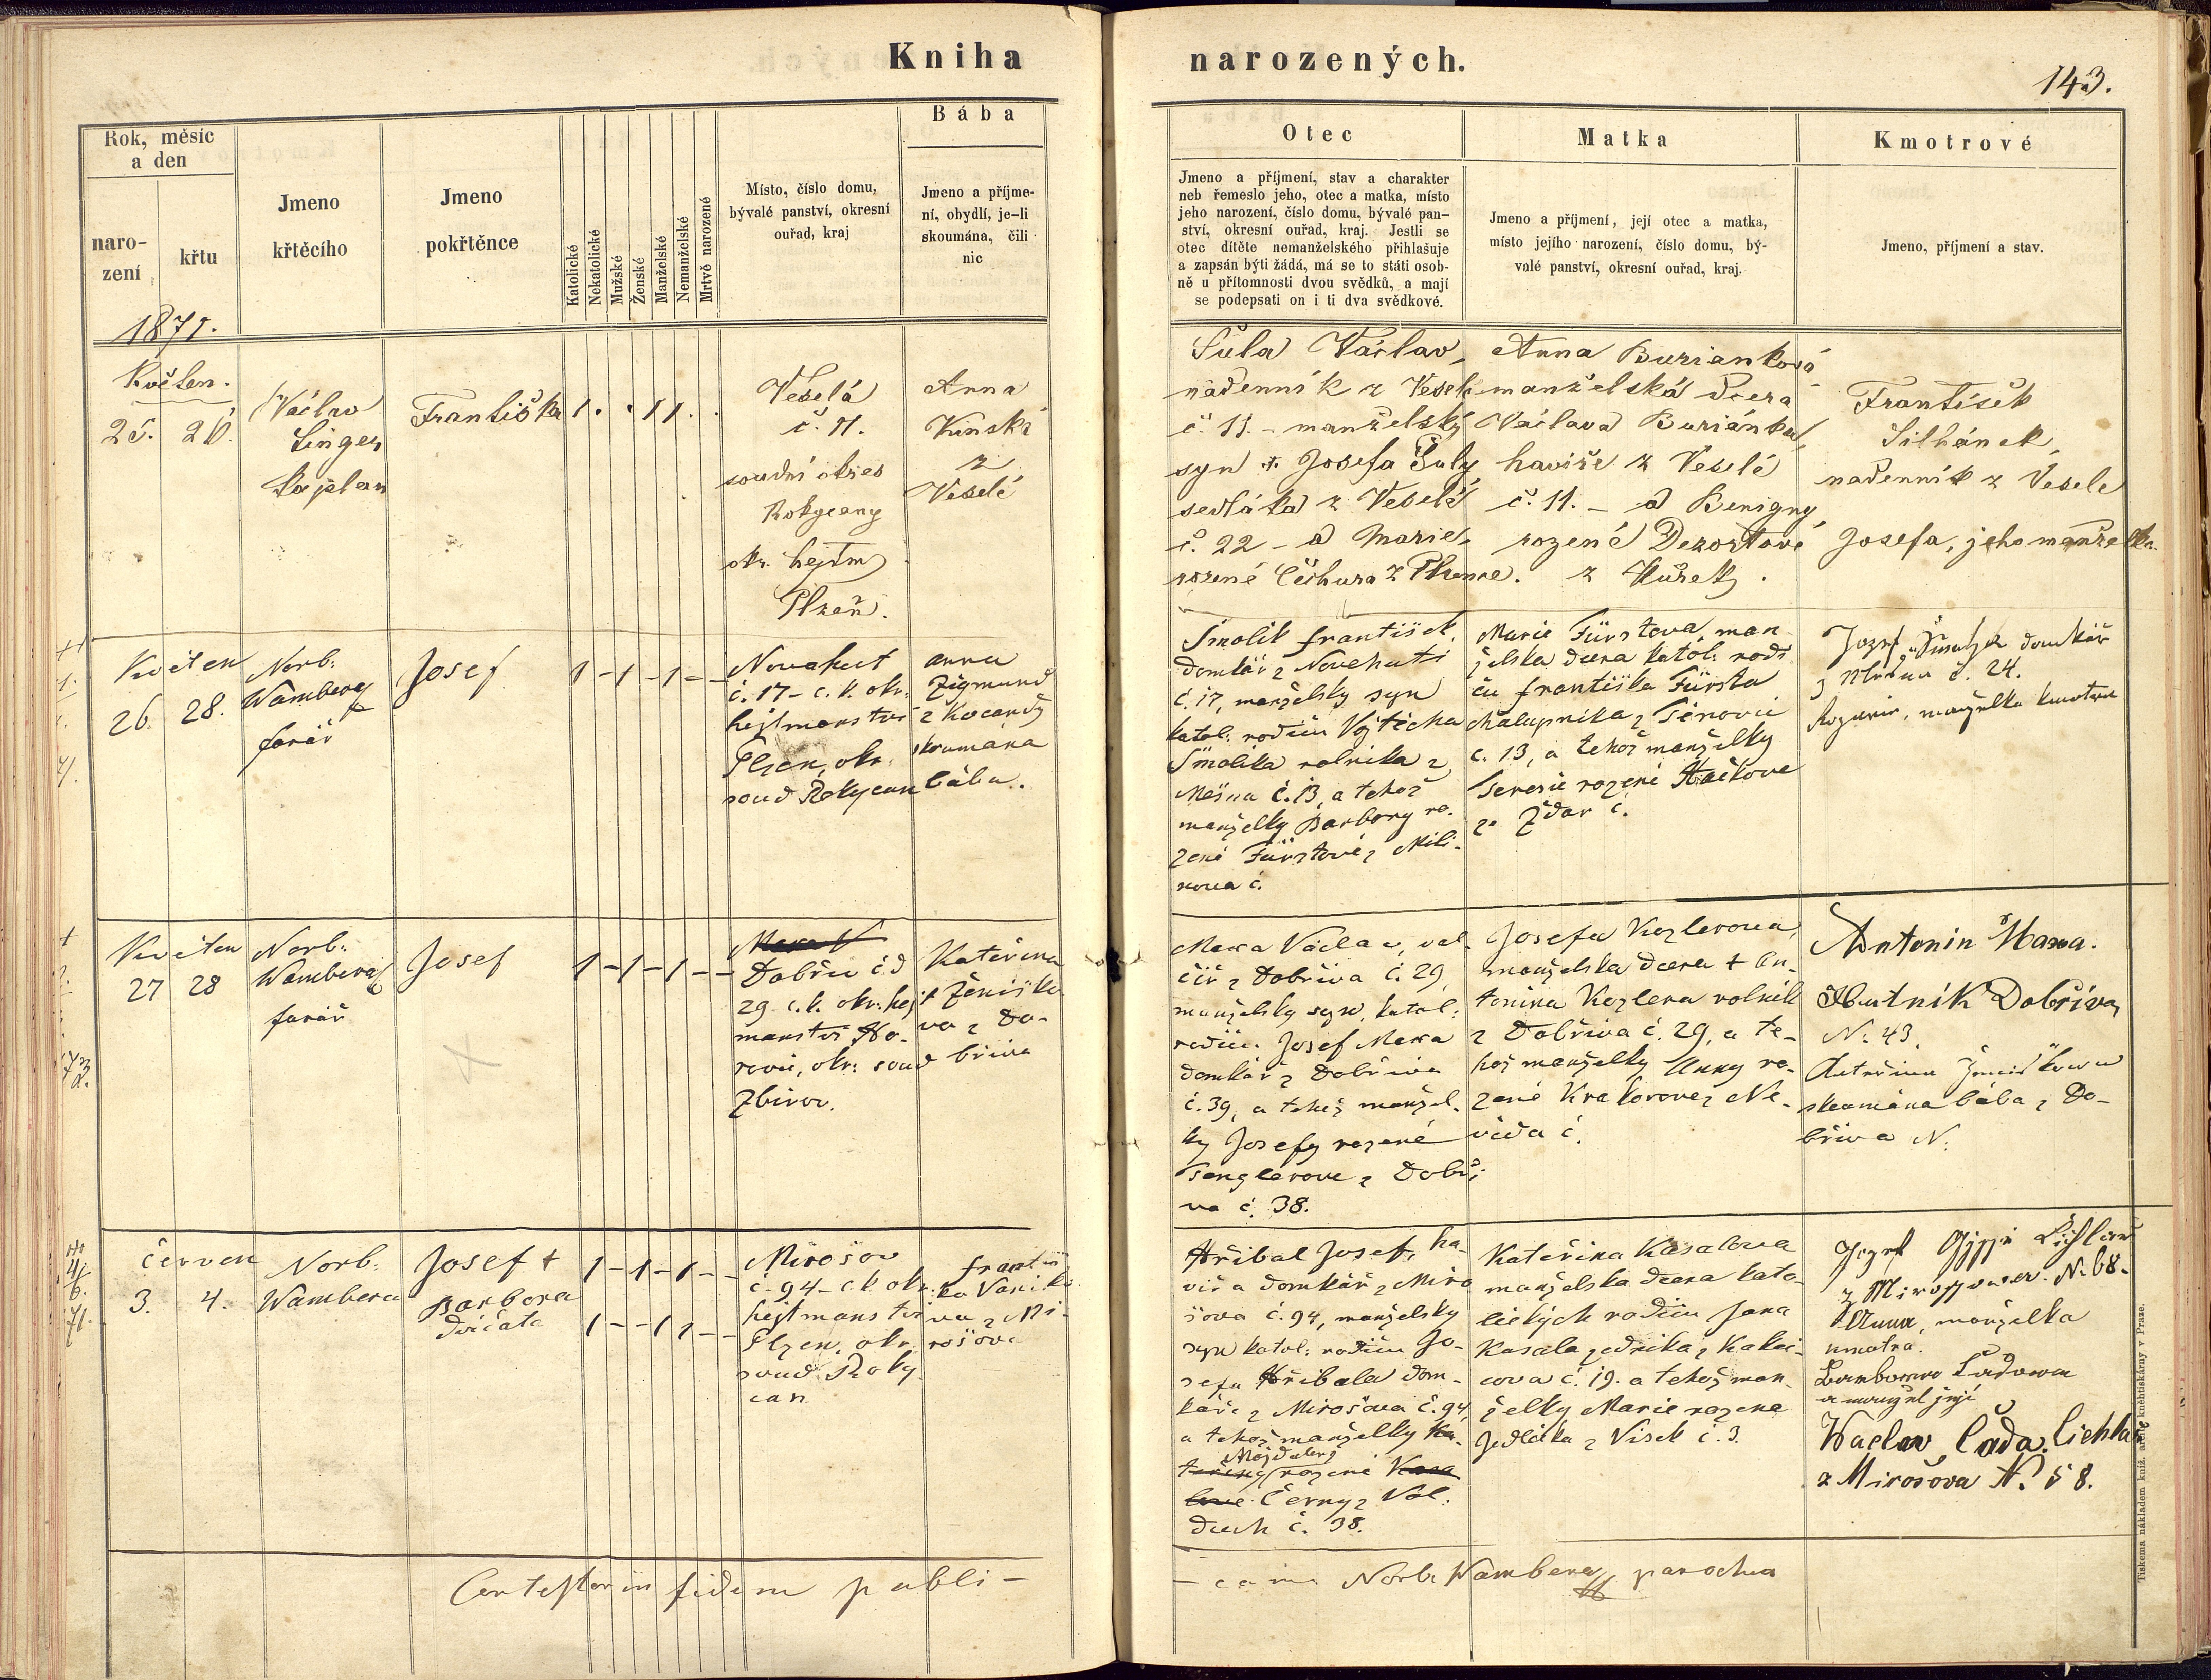 Kniha
narozených.
143.
Rok, měsíc
a den
naro-
zení
křtu
Jmeno
křtěcího
Jmeno
pokřtěnce
Katolické
Nekatolické
Mužské
Ženské
Manželské
Nemanželské
Mrtvě narozené
Místo, číslo domu,
bývalé panství, okresní
ouřad, kraj
Bába
Jmeno a příjme-
ní, obydlí, je-li
skoumána, čili
nic
Otec
Jmeno a příjmení, stav a charakter
neb řemeslo jeho, otec a matka, místo
jeho narození, číslo domu, bývalé pan-
ství, okresní ouřad, kraj. Jestli se
otec dítěte nemanželského přihlašuje
a zapsán býti žádá, má se to státi osob-
ně u přítomnosti dvou svědků, a mají
se podepsati on i ti dva svědkové.
Matka
Jmeno a příjmení, její otec a matka,
místo jejího narození, číslo domu, bý-
valé panství, okresní ouřad, kraj.
Kmotrové
Jmeno, příjmení a stav.
1871.
Květen.
25. 26.
Václav
Singer
kaplan
Františka
1 . . 1 1 .
Veselá
č. 11.
soudní okres
Rokycany
okr. hejtm
Plzeň.
Anna
Kinská
z
Veselé
Šula Václav,
nádenník z Vesel
č. 11. - manželský
syn Josefa Šuly
sedláka z Veselé
č. 22 - a Marie,
rozené Čechura z Plzence.
Anna Burianková
manželská dcera
Václava Buriánka,
havíře z Veselé
č. 11. - a Benigny,
rozené Dezortové
z
František
Silhánek,
nadenník z Vesele
Josefa, jeho manželka.
Květen
26. 28.
Norb.
Wambera
farář
Josef
1 - 1 - 1 - -
Novahut
č. 17 - c. k. okr.
hejtmanství
Plzen, okr.
soud Rokycan
anna
Zigmund
z Kocandy
skoumána
bába.
Smolik František,
domkář z Novehuti
č. 17, manželsky syn
katol. rodičů Vojtěcha
Smolika rolnika z
Mešna č. 13, a tehož
manželky Barbory ro-
zené Fürstové z Mili-
nova č.
Marie Fürstova, man
želska dcera katol. rodi
čů Františka Fürsta
chalupnika z Tenovic
č. 13, a tehož manželky
Teresie rozené
ze Ždar č.
Jozef domkář
z č. 24.
manželka kmotra
Květen
27 28
Norb.
Wambera
farář
Josef
1 - 1 - 1 - -
Dobřiv č d
29 c. k. okr. hejt
manství Ho-
rovic, okr. soud
Zbirov.
Kateřina
Ženiško
va z Do-
břiva
Maxa Václav, val-
číř z Dobřiva č. 29,
manželsky syn, katol.
rodičů Josef Maxa
domkář z Dobřiva
č. 39, a tehož manžel-
ky Josefy rozené
Tenglerove z Dobři
va č. 38.
Josefa Kezlerova,
manželska dcera † An-
tonina Kezlera rolnik
z Dobřiva č. 29, a te-
hož manželky Anny ro-
zené Krakorove z Ne-
vida č.
Antonin Maxa.
Hutník Dobříva
N. 43.
skoumána bába z Do-
břiva N.
červen
3. 4.
Norb.
Wambera
Josef †
Barbora
dvičata
1 - 1 - 1 - -
1 - - 1 1 - -
Mirošov
č. 94 - c k okr.
hejtmanství
Plzen, okr.
soud Roky
can
františ
ka Vaniko
va z Mi-
rošova
Hřibal Josef, ha-
víř a domkář z Miro
šova č. 94, manželsky
syn katol. rodičů Jo-
sefa Hřibala dom-
káře z Mirošova č. 94,
a tehož manželky Ka-
Majdaleny
teřiny rozené Kasa
love Černy z Vol-
duch č. 38.
Kateřina Kasalova
manželska dcera kato-
lických rodičů Jana
Kasala zednika z Kakej-
cova č. 19. a tehož man-
želky Marie rozena
Jedlička z Visek č. 3.
Jozef
z N. 68.
Anna, manželka
kmotra.
a manžel její
Waclav Čada Cichlař
z Mirošova N. 58.
Contestor in fidem publi-
- cam Norb. Wambera parochus
Tiskema nákladem kníž. arcib. knihtiskárny v Praze.